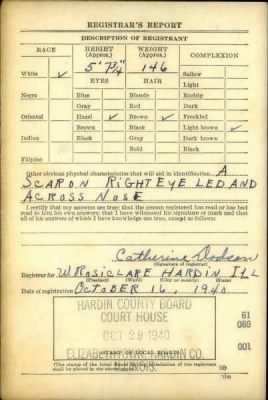 REGISTRAR'S REPORT
DESCRIPTION OF REGISTRANT
RACE HEIGHT (Approx.) WEIGHT (Approx.) COMPLEXION
5' 7 3/4" 146
White ✓ Sallow
EYES HAIR Light
Negro Blue Blonde Ruddy
Gray Red Dark
Oriental Hazel ✓ Brown ✓ Freckled
Brown Black Light brown ✓
Indian Black Gray Dark brown
Bald Black
Filipino
Other obvious physical characteristics that will aid in identification A
SCAR ON RIGHT EYE LED AND
ACROSS NOSE
I certify that my answers are true; that the person registered has read or has had
read to him his own answers; that I have witnessed his signature or mark and that
all of his answers of which I have knowledge are true, except as follows:
Catherine Dodson
(Signature of registrar)
Registrar for W ROSICLARE HARDIN ILL
(Precinct) (Ward) (City or county) (State)
Date of registration OCTOBER 16, 1940
HARDIN COUNTY BOARD
COURT HOUSE
61
OCT 29 1940
001
ELIZABETHTOWN, HARDIN CO.
ILLINOIS
(STAMP OF LOCAL BOARD)
(The stamp of the Local Board having jurisdiction of the registrant
shall be placed in the above space.)